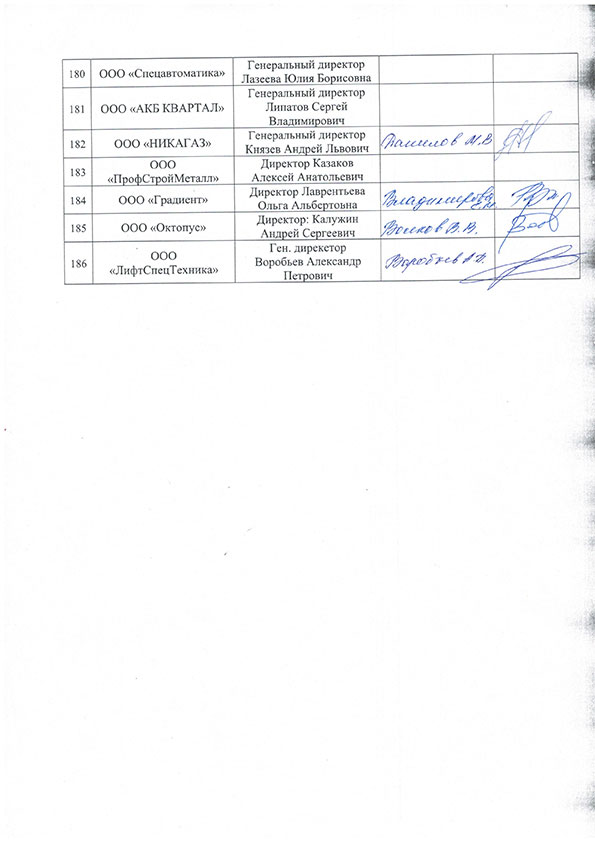 180
ООО «Спецавтоматика»
Генеральный директор
Лазеева Юлия Борисовна
181
ООО «АКБ КВАРТАЛ»
Генеральный директор
Липатов Сергей
Владимирович
182
ООО «НИКАГАЗ»
Генеральный директор
Князев Андрей Львович
Данилов М.В
183
ООО
«ПрофСтройМеталл»
Директор Казаков
Алексей Анатольевич
184
ООО «Градиент»
Директор Лаврентьева
Ольга Альбертовна
Владимирова
185
ООО «Октопус»
Директор: Калужин
Андрей Сергеевич
Волков В.В.
186
ООО
«ЛифтСпецТехника»
Ген. дирекетор
Воробьев Александр
Петрович
Воробьев А.П.